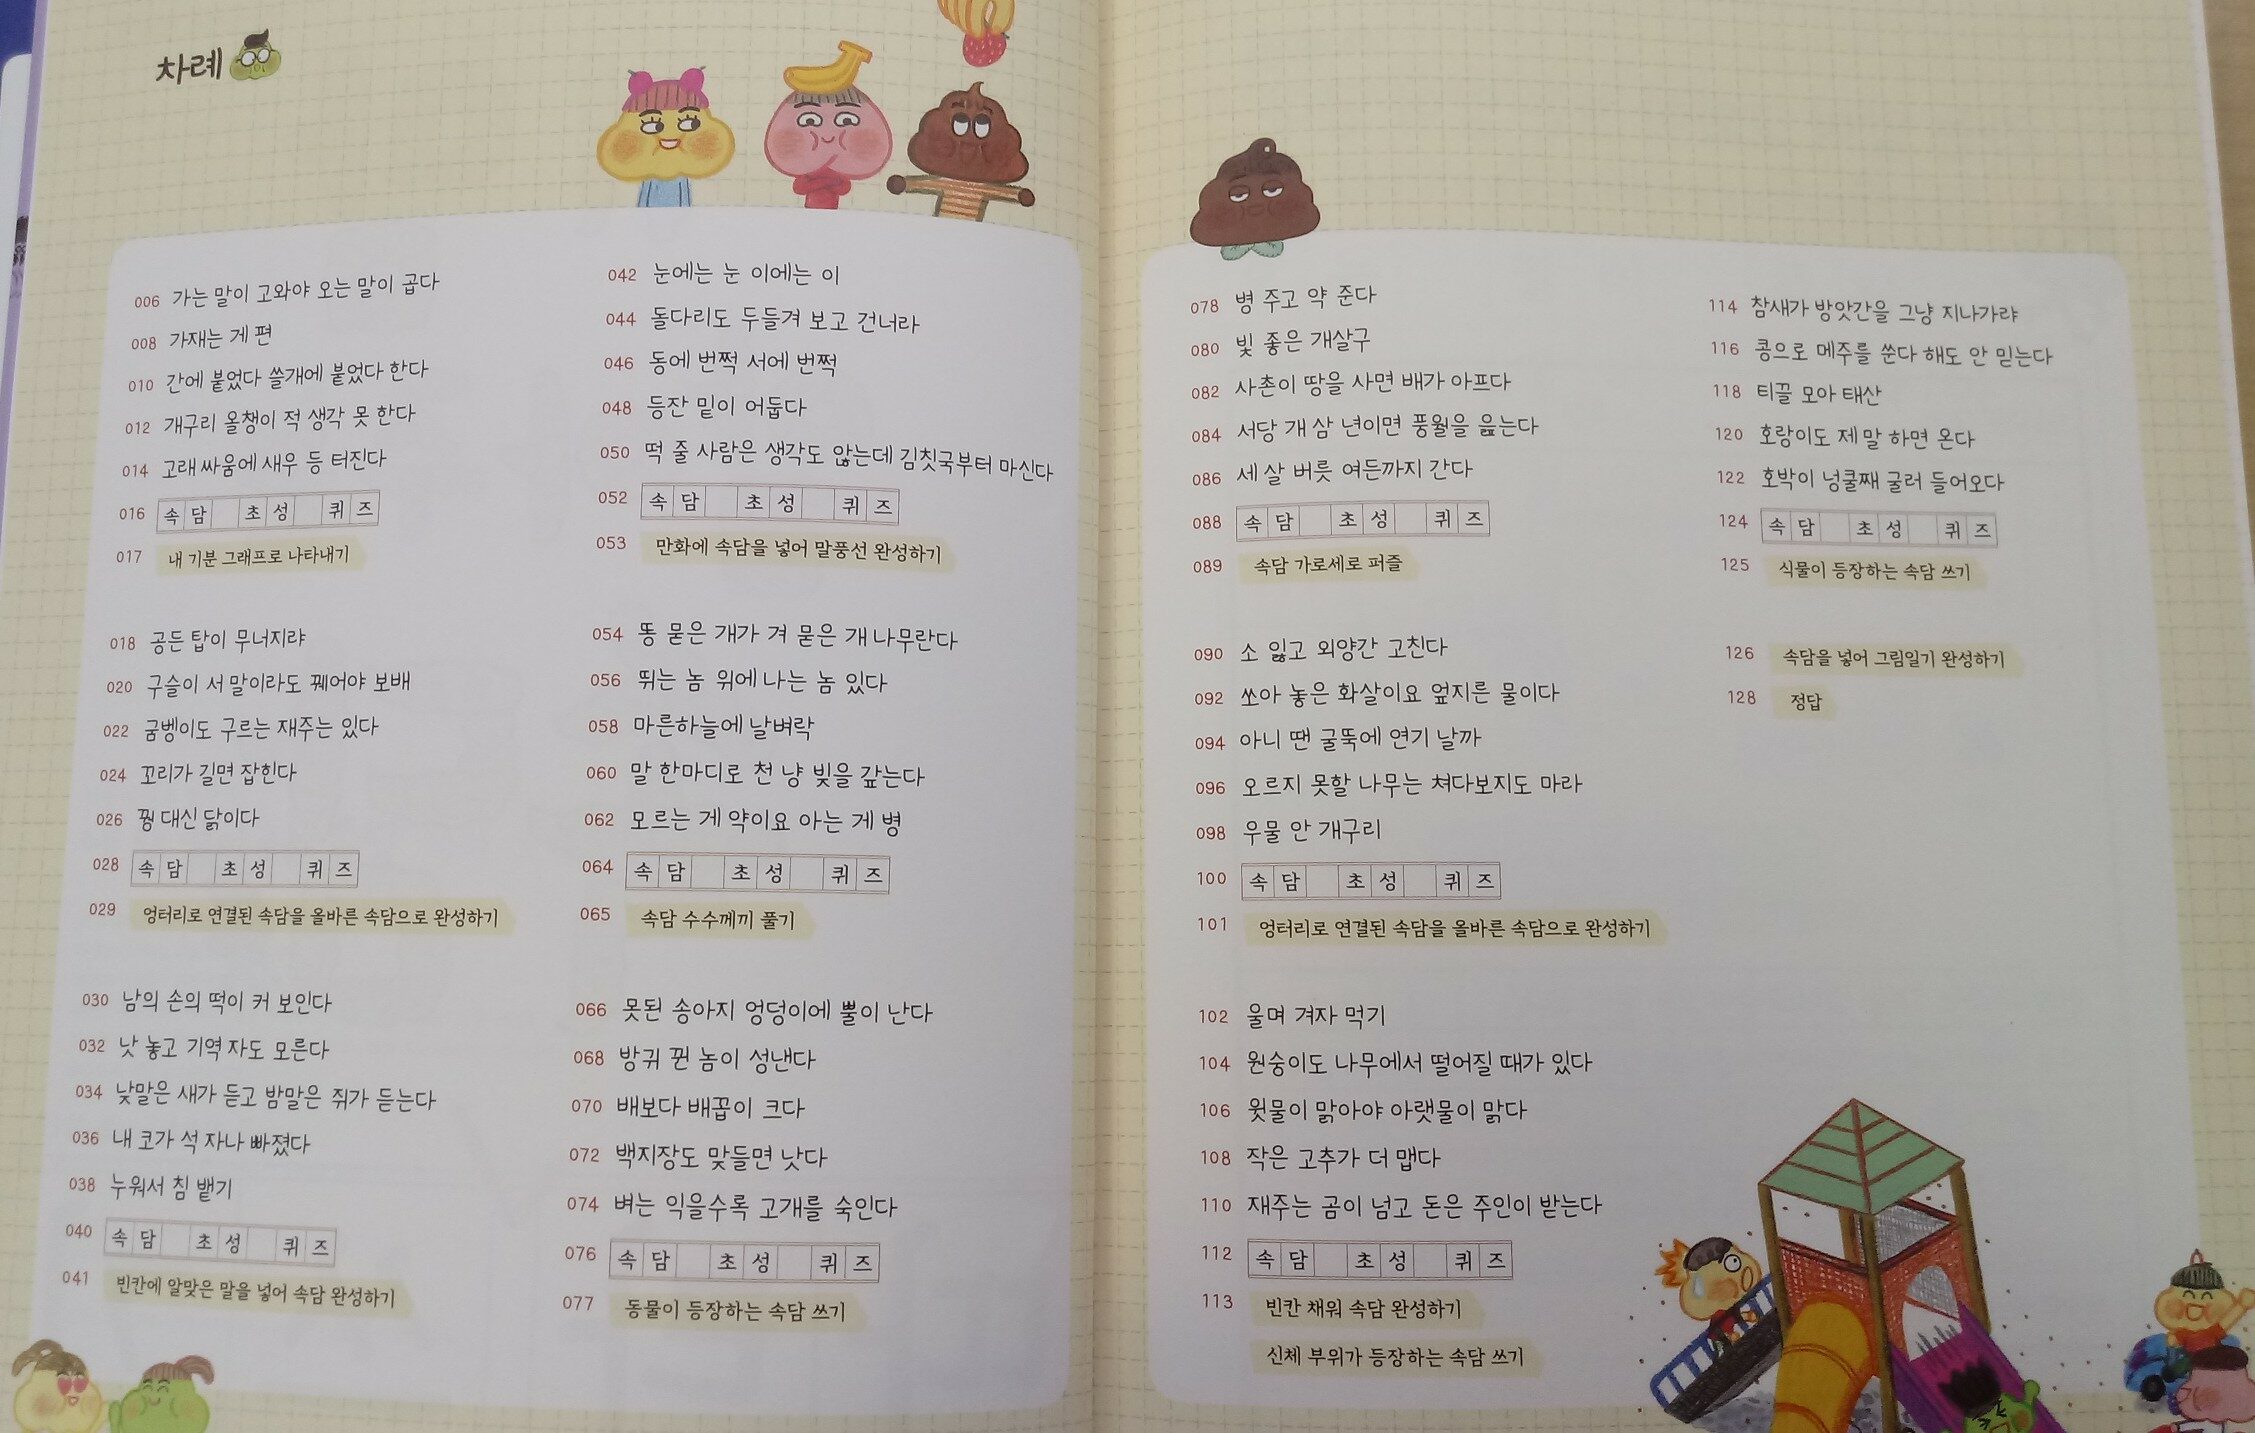 차례
006 가는 말이 고와야 오는 말이 곱다
008 가재는 게 편
010 간에 붙었다 쓸개에 붙었다 한다
012 개구리 올챙이 적 생각 못 한다
014 고래 싸움에 새우 등 터진다
016 속담 초성 퀴즈
017 내 기분 그래프로 나타내기
018 공든 탑이 무너지랴
020 구슬이 서 말이라도 꿰어야 보배
022 굼벵이도 구르는 재주는 있다
024 꼬리가 길면 잡힌다
026 꿩 대신 닭이다
028 속담 초성 퀴즈
029 엉터리로 연결된 속담을 올바른 속담으로 완성하기
030 남의 손의 떡이 커 보인다
032 낫 놓고 기역 자도 모른다
034 낮말은 새가 듣고 밤말은 쥐가 듣는다
036 내 코가 석 자나 빠졌다
038 누워서 침 뱉기
040 속담 초성 퀴즈
041 빈칸에 알맞은 말을 넣어 속담 완성하기
042 눈에는 눈 이에는 이
044 돌다리도 두들겨 보고 건너라
046 동에 번쩍 서에 번쩍
048 등잔 밑이 어둡다
050 떡 줄 사람은 생각도 않는데 김칫국부터 마신다
052 속담 초성 퀴즈
053 만화에 속담을 넣어 말풍선 완성하기
054 똥 묻은 개가 겨 묻은 개 나무란다
056 뛰는 놈 위에 나는 놈 있다
058 마른하늘에 날벼락
060 말 한마디로 천 냥 빚을 갚는다
062 모르는 게 약이요 아는 게 병
064 속담 초성 퀴즈
065 속담 수수께끼 풀기
066 못된 송아지 엉덩이에 뿔이 난다
068 방귀 뀐 놈이 성낸다
070 배보다 배꼽이 크다
072 백지장도 맞들면 낫다
074 벼는 익을수록 고개를 숙인다
076 속담 초성 퀴즈
077 동물이 등장하는 속담 쓰기
078 병 주고 약 준다
080 빛 좋은 개살구
082 사촌이 땅을 사면 배가 아프다
084 서당 개 삼 년이면 풍월을 읊는다
086 세 살 버릇 여든까지 간다
088 속담 초성 퀴즈
089 속담 가로세로 퍼즐
090 소 잃고 외양간 고친다
092 쏘아 놓은 화살이요 엎지른 물이다
094 아니 땐 굴뚝에 연기 날까
096 오르지 못할 나무는 쳐다보지도 마라
098 우물 안 개구리
100 속담 초성 퀴즈
101 엉터리로 연결된 속담을 올바른 속담으로 완성하기
102 울며 겨자 먹기
104 원숭이도 나무에서 떨어질 때가 있다
106 윗물이 맑아야 아랫물이 맑다
108 작은 고추가 더 맵다
110 재주는 곰이 넘고 돈은 주인이 받는다
112 속담 초성 퀴즈
113 빈칸 채워 속담 완성하기
신체 부위가 등장하는 속담 쓰기
114 참새가 방앗간을 그냥 지나가랴
116 콩으로 메주를 쑨다 해도 안 믿는다
118 티끌 모아 태산
120 호랑이도 제 말 하면 온다
122 호박이 넝쿨째 굴러 들어오다
124 속담 초성 퀴즈
125 식물이 등장하는 속담 쓰기
126 속담을 넣어 그림일기 완성하기
128 정답